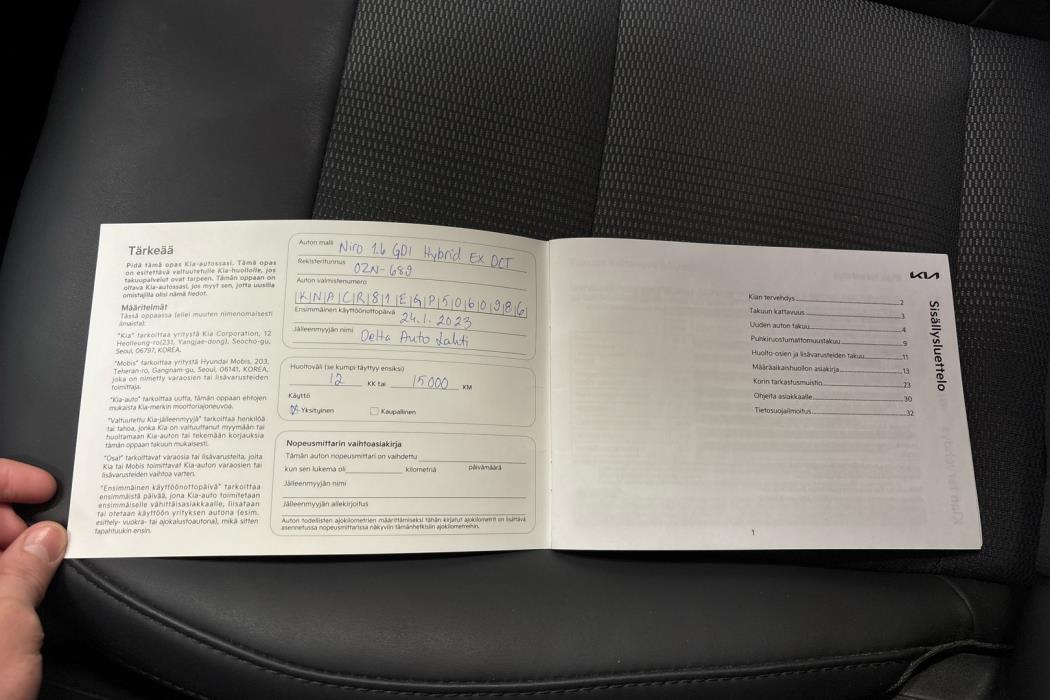 Tärkeää
Pidä tämä opas Kia-autossasi. Tämä opas
on esitettävä valtuutetulle Kia-huollolle, jos
takuupalvelut ovat tarpeen. Tämän oppaan on
oltava Kia-autossasi, jos myyt sen, jotta uusilla
omistajilla olisi nämä tiedot.
Määritelmät
Tässä oppaassa (ellei muuten nimenomaisesti
ilmaista):
"Kia" tarkoittaa yritystä Kia Corporation, 12
Heolleung-ro(231, Yangjae-dong), Seocho-gu,
Seoul, 06797, KOREA.
"Mobis" tarkoittaa yritystä Hyundai Mobis, 203,
Teheran-ro, Gangnam-gu, Seoul, 06141, KOREA,
joka on nimetty varaosien tai lisävarusteiden
toimittaja.
"Kia-auto" tarkoittaa uutta, tämän oppaan ehtojen
mukaista Kia-merkin moottoriajoneuvoa.
"Valtuutettu Kia-jälleenmyyjä" tarkoittaa henkilöä
tai tahoa, jonka Kia on valtuuttanut myymään tai
huoltamaan Kia-auton tai tekemään korjauksia
tämän oppaan takuun mukaisesti.
"Osat" tarkoittavat varaosia tai lisävarusteita, joita
Kia tai Mobis toimittavat Kia-auton varaosien tai
lisävarusteiden vaihtoa varten.
"Ensimmäinen käyttöönottopäivä" tarkoittaa
ensimmäistä päivää, jona Kia-auto toimitetaan
ensimmäiselle vähittäisasiakkaalle, liisataan
tai otetaan käyttöön yrityksen autona (esim.
esittely- vuokra- tai ajokalustoautona), mikä sitten
tapahtuukin ensin.
Auton malli Niro 1.6 GDI Hybrid EX DCT
Rekisteritunnus OZN-689
Auton valmistenumero
KNACR81EGP5060986
Ensimmäinen käyttöönottopäivä 24.1.2023
Jälleenmyyjän nimi Delta Auto Lahti
Huoltoväli (se kumpi täyttyy ensiksi)
12 KK tai 15 000 KM
Käyttö
Yksityinen Kaupallinen
Nopeusmittarin vaihtoasiakirja
Tämän auton nopeusmittari on vaihdettu
kun sen lukema oli kilometriä päivämäärä
Jälleenmyyjän nimi
Jälleenmyyjän allekirjoitus
Auton todellisten ajokilometrien määrittämiseksi tähän kirjatut ajokilometrit on lisättävä
asennetussa nopeusmittarissa näkyviin tämänhetkisiin ajokilometreihin.
KIA
Sisällysluettelo
Kian tervehdys 2
Takuun kattavuus 3
Uuden auton takuu 4
Puhkiruostumattomuustakuu 9
Huolto-osien ja lisävarusteiden takuu 11
Määräaikaishuollon asiakirja 13
Korin tarkastusmuistio 23
Ohjeita asiakkaalle 30
Tietosuojailmoitus 32
1